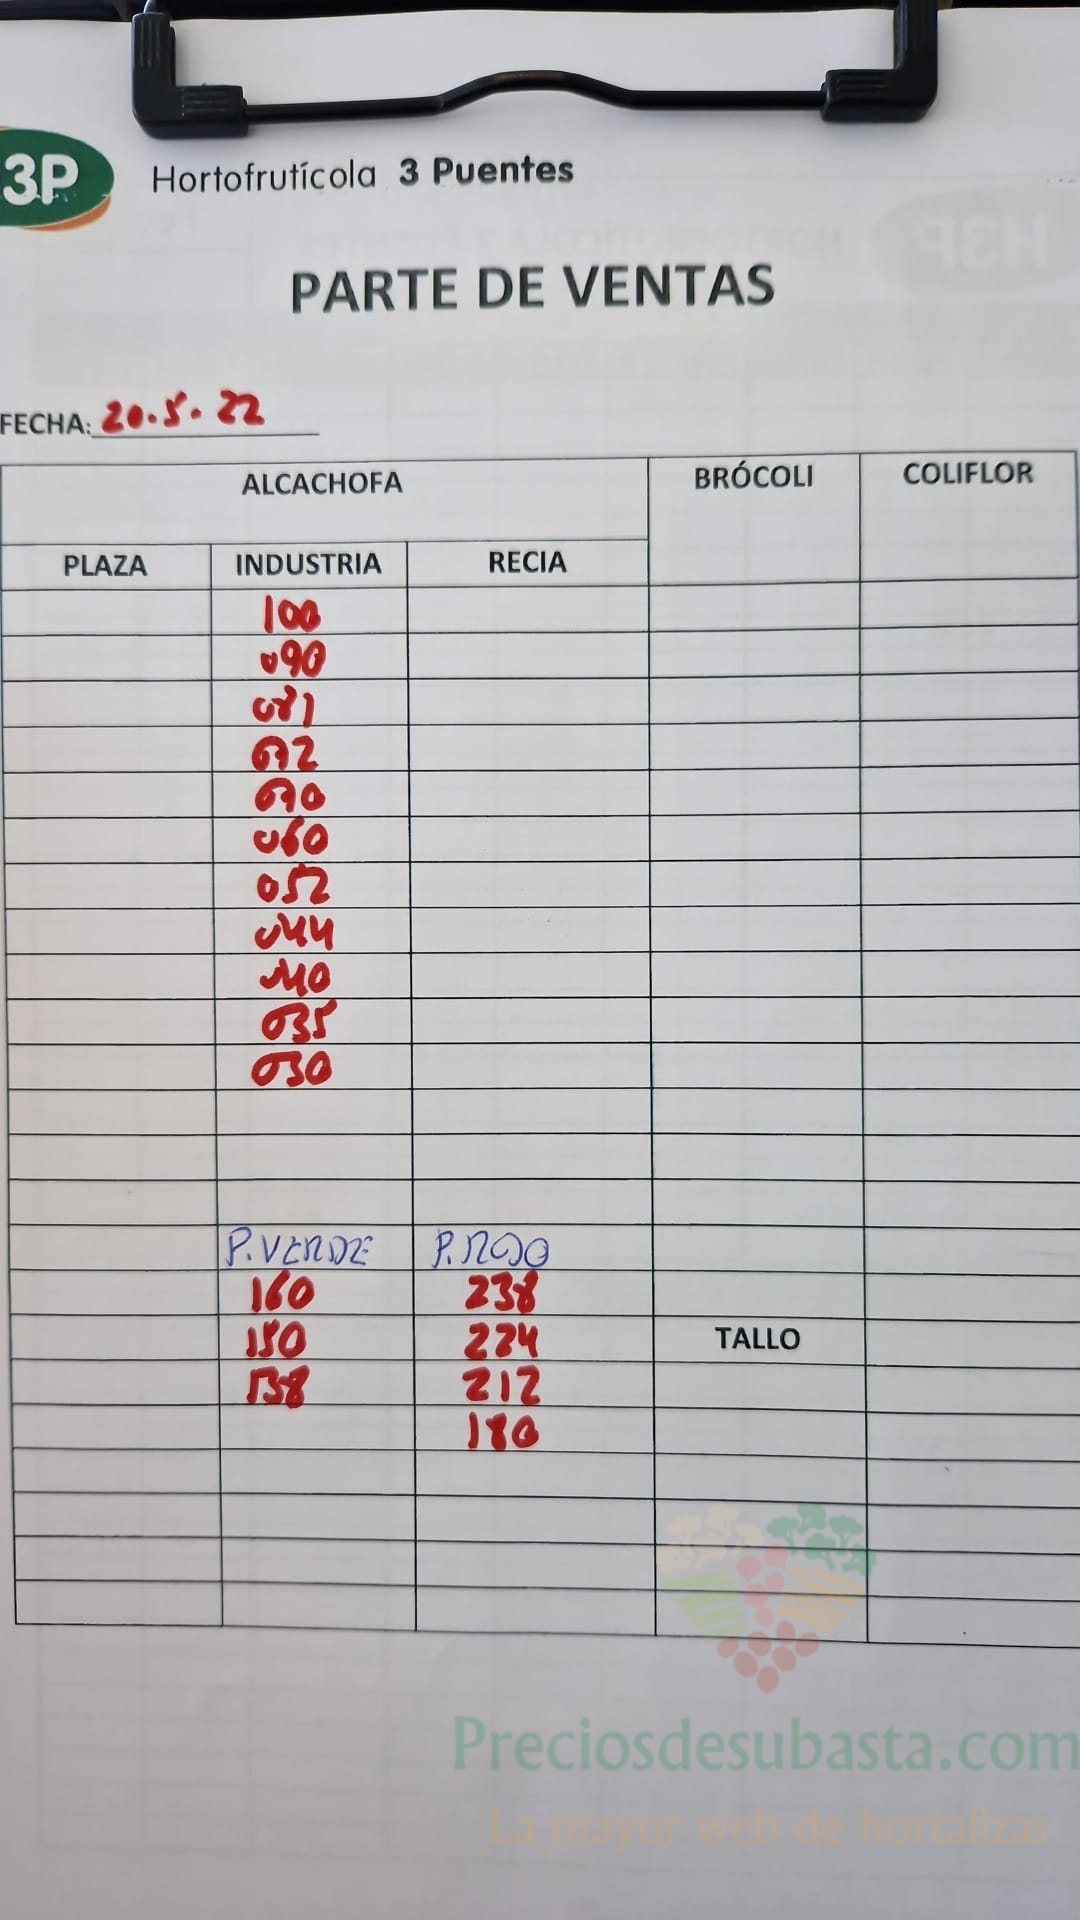 3P Hortofrutícola 3 Puentes
PARTE DE VENTAS
FECHA: 20.5.22
ALCACHOFA BRÓCOLI COLIFLOR
PLAZA INDUSTRIA RECIA
100
090
081
072
070
060
052
044
040
035
030
P.VERDE P.ROJO
160 238
150 224 TALLO
138 212
180
Preciosdesubasta.com
La mayor web de hortalizas